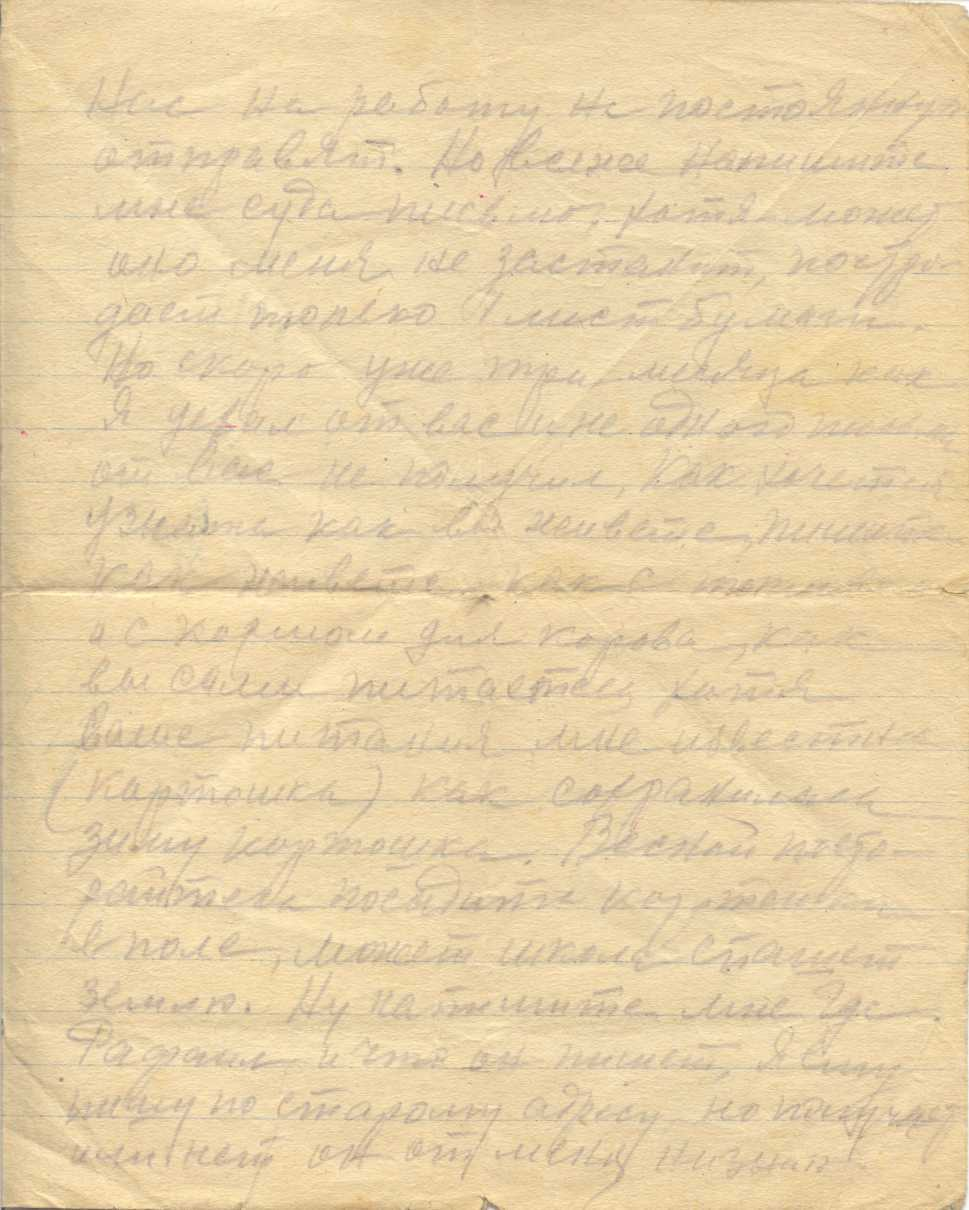 Нас на работу не постоянную
отправят. Но всеже напишите
мне суда письмо, хотя может
оно меня не застанит, постро-
дает только 1 лист бумаги.
Но скоро уже три месяца как
Я уехал от вас и не одного письма
от Вас не получил, Как хочется
узнать как вы живете, пишите
как живете, как с топливом
а с кормом для корова, как
вы сами питаетесь, хотя
Ваше питания мне известно
(картошка) как сохранилась
зиму картошка. Весной поста-
райтесь посадить картошки
в поле, может школа спашет
землю. Ну напишите мне где
Рафаил и что он пишет, Я ему
пишу по старому адресу, но получает
или нет он от меня низнаю.